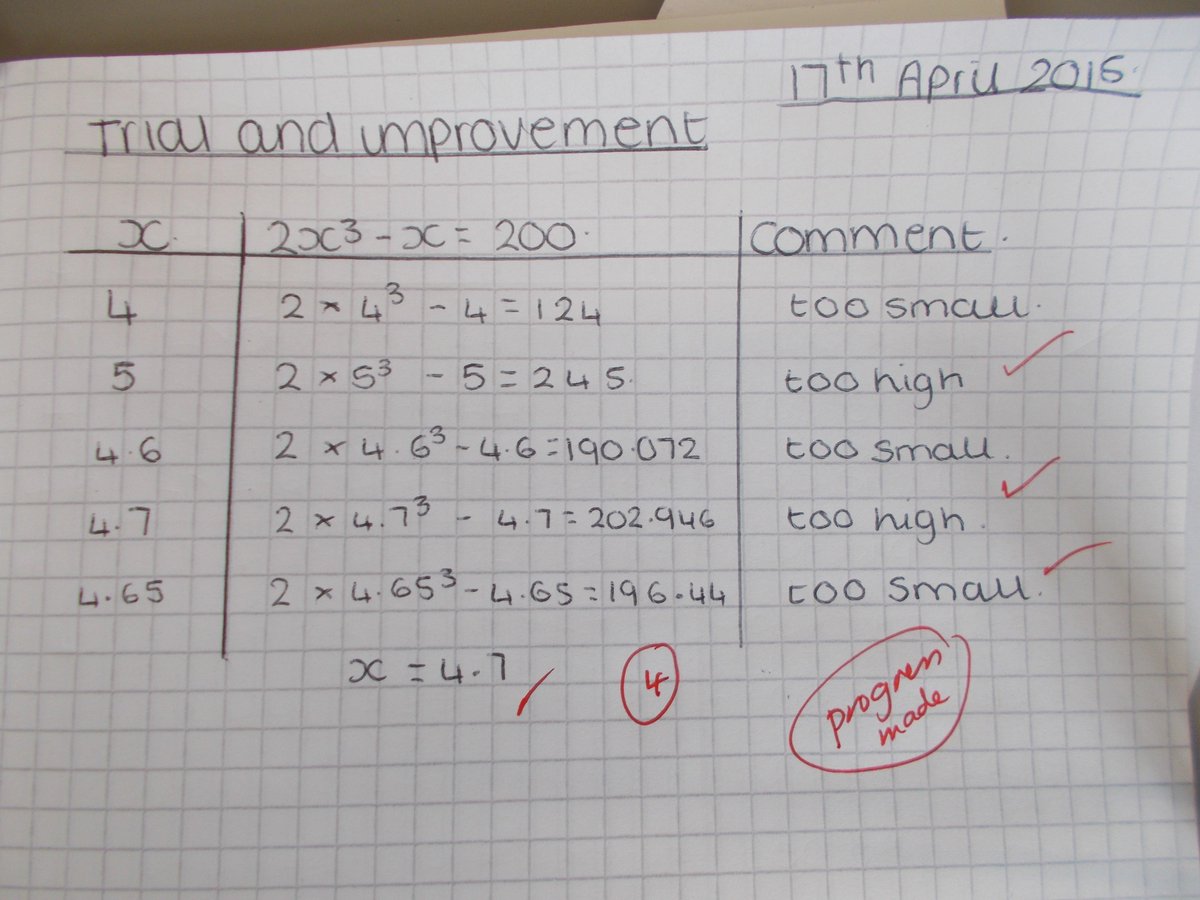 17th April 2015.
Trial and improvement
x. 2x³ - x = 200. Comment.
4 2 × 4³ - 4 = 124 too small.
5 2 × 5³ - 5 = 245. too high ✓
4.6 2 × 4.6³ - 4.6 = 190.072 too small.
4.7 2 × 4.7³ - 4.7 = 202.946 too high. ✓
4.65 2 × 4.65³ - 4.65 = 196.44 too small. ✓
x = 4.7 ✓ 4
progress
made